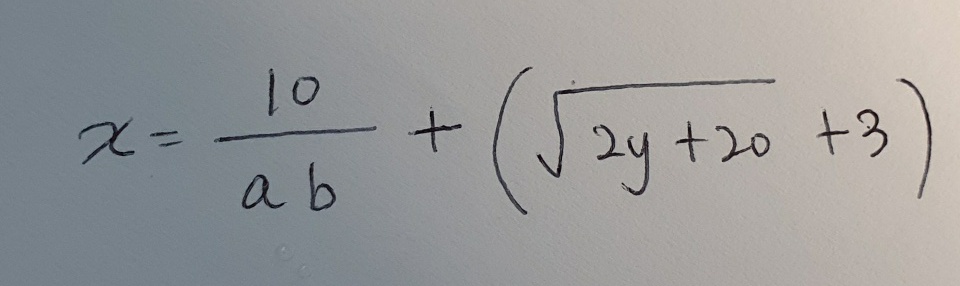 x = \frac{10}{ab} + (\sqrt{2y+20} + 3)